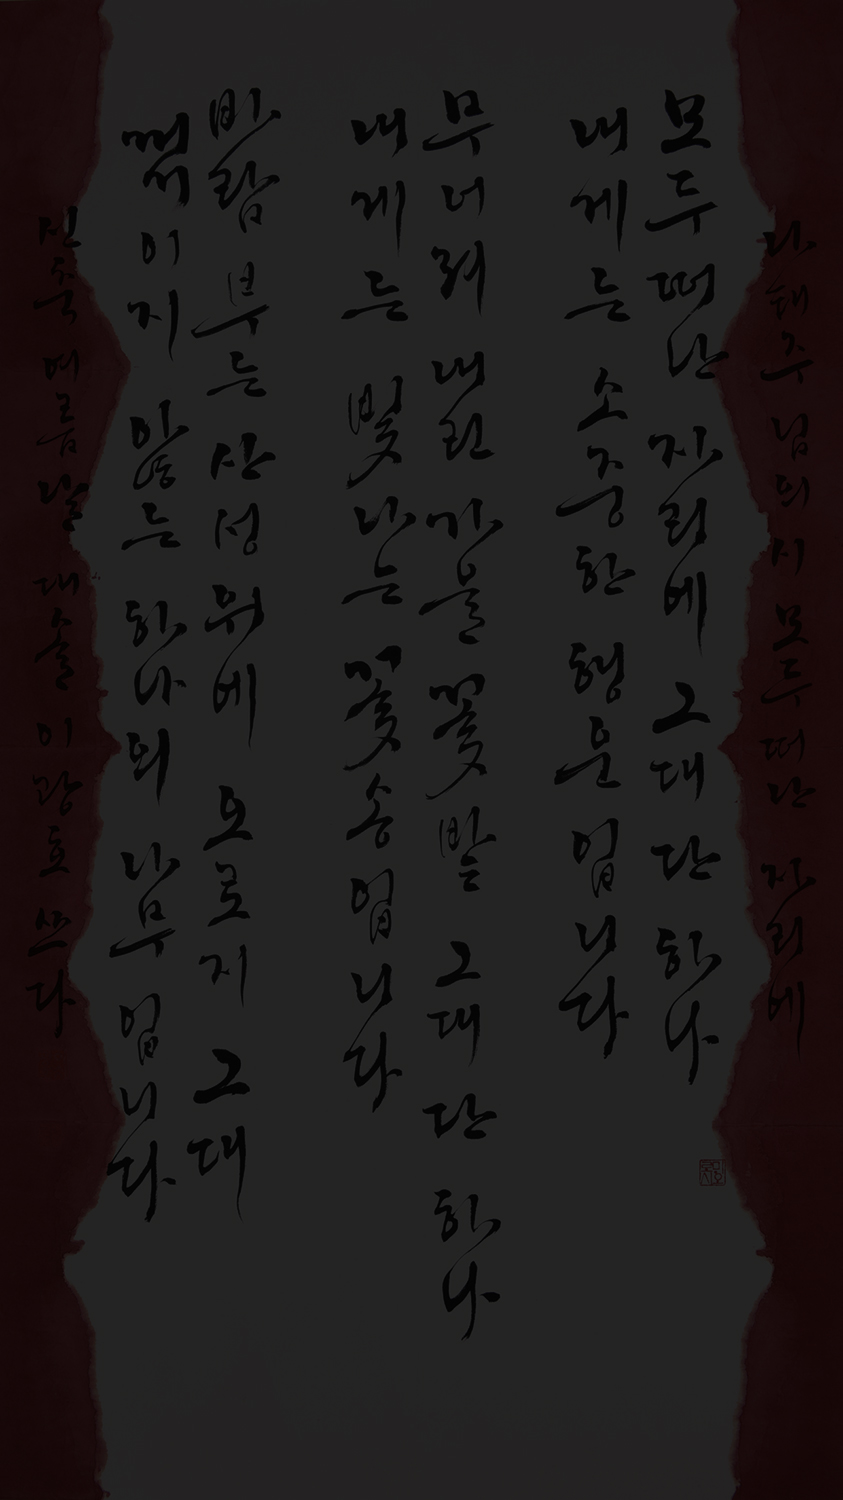 나해주님의 시 모두 떠난 자리에
모두 떠난 자리에 그대 단 하나
내게는 소중한 행운 입니다
무너져 내린 가을 꽃밭 그대 단 하나
내게는 빛나는 꽃송 입니다
바람 부는 산성 위에 오로지 그대
꺾이지 않는 하나의 나무 입니다
신축 여름날 대솔 이광호 쓰다